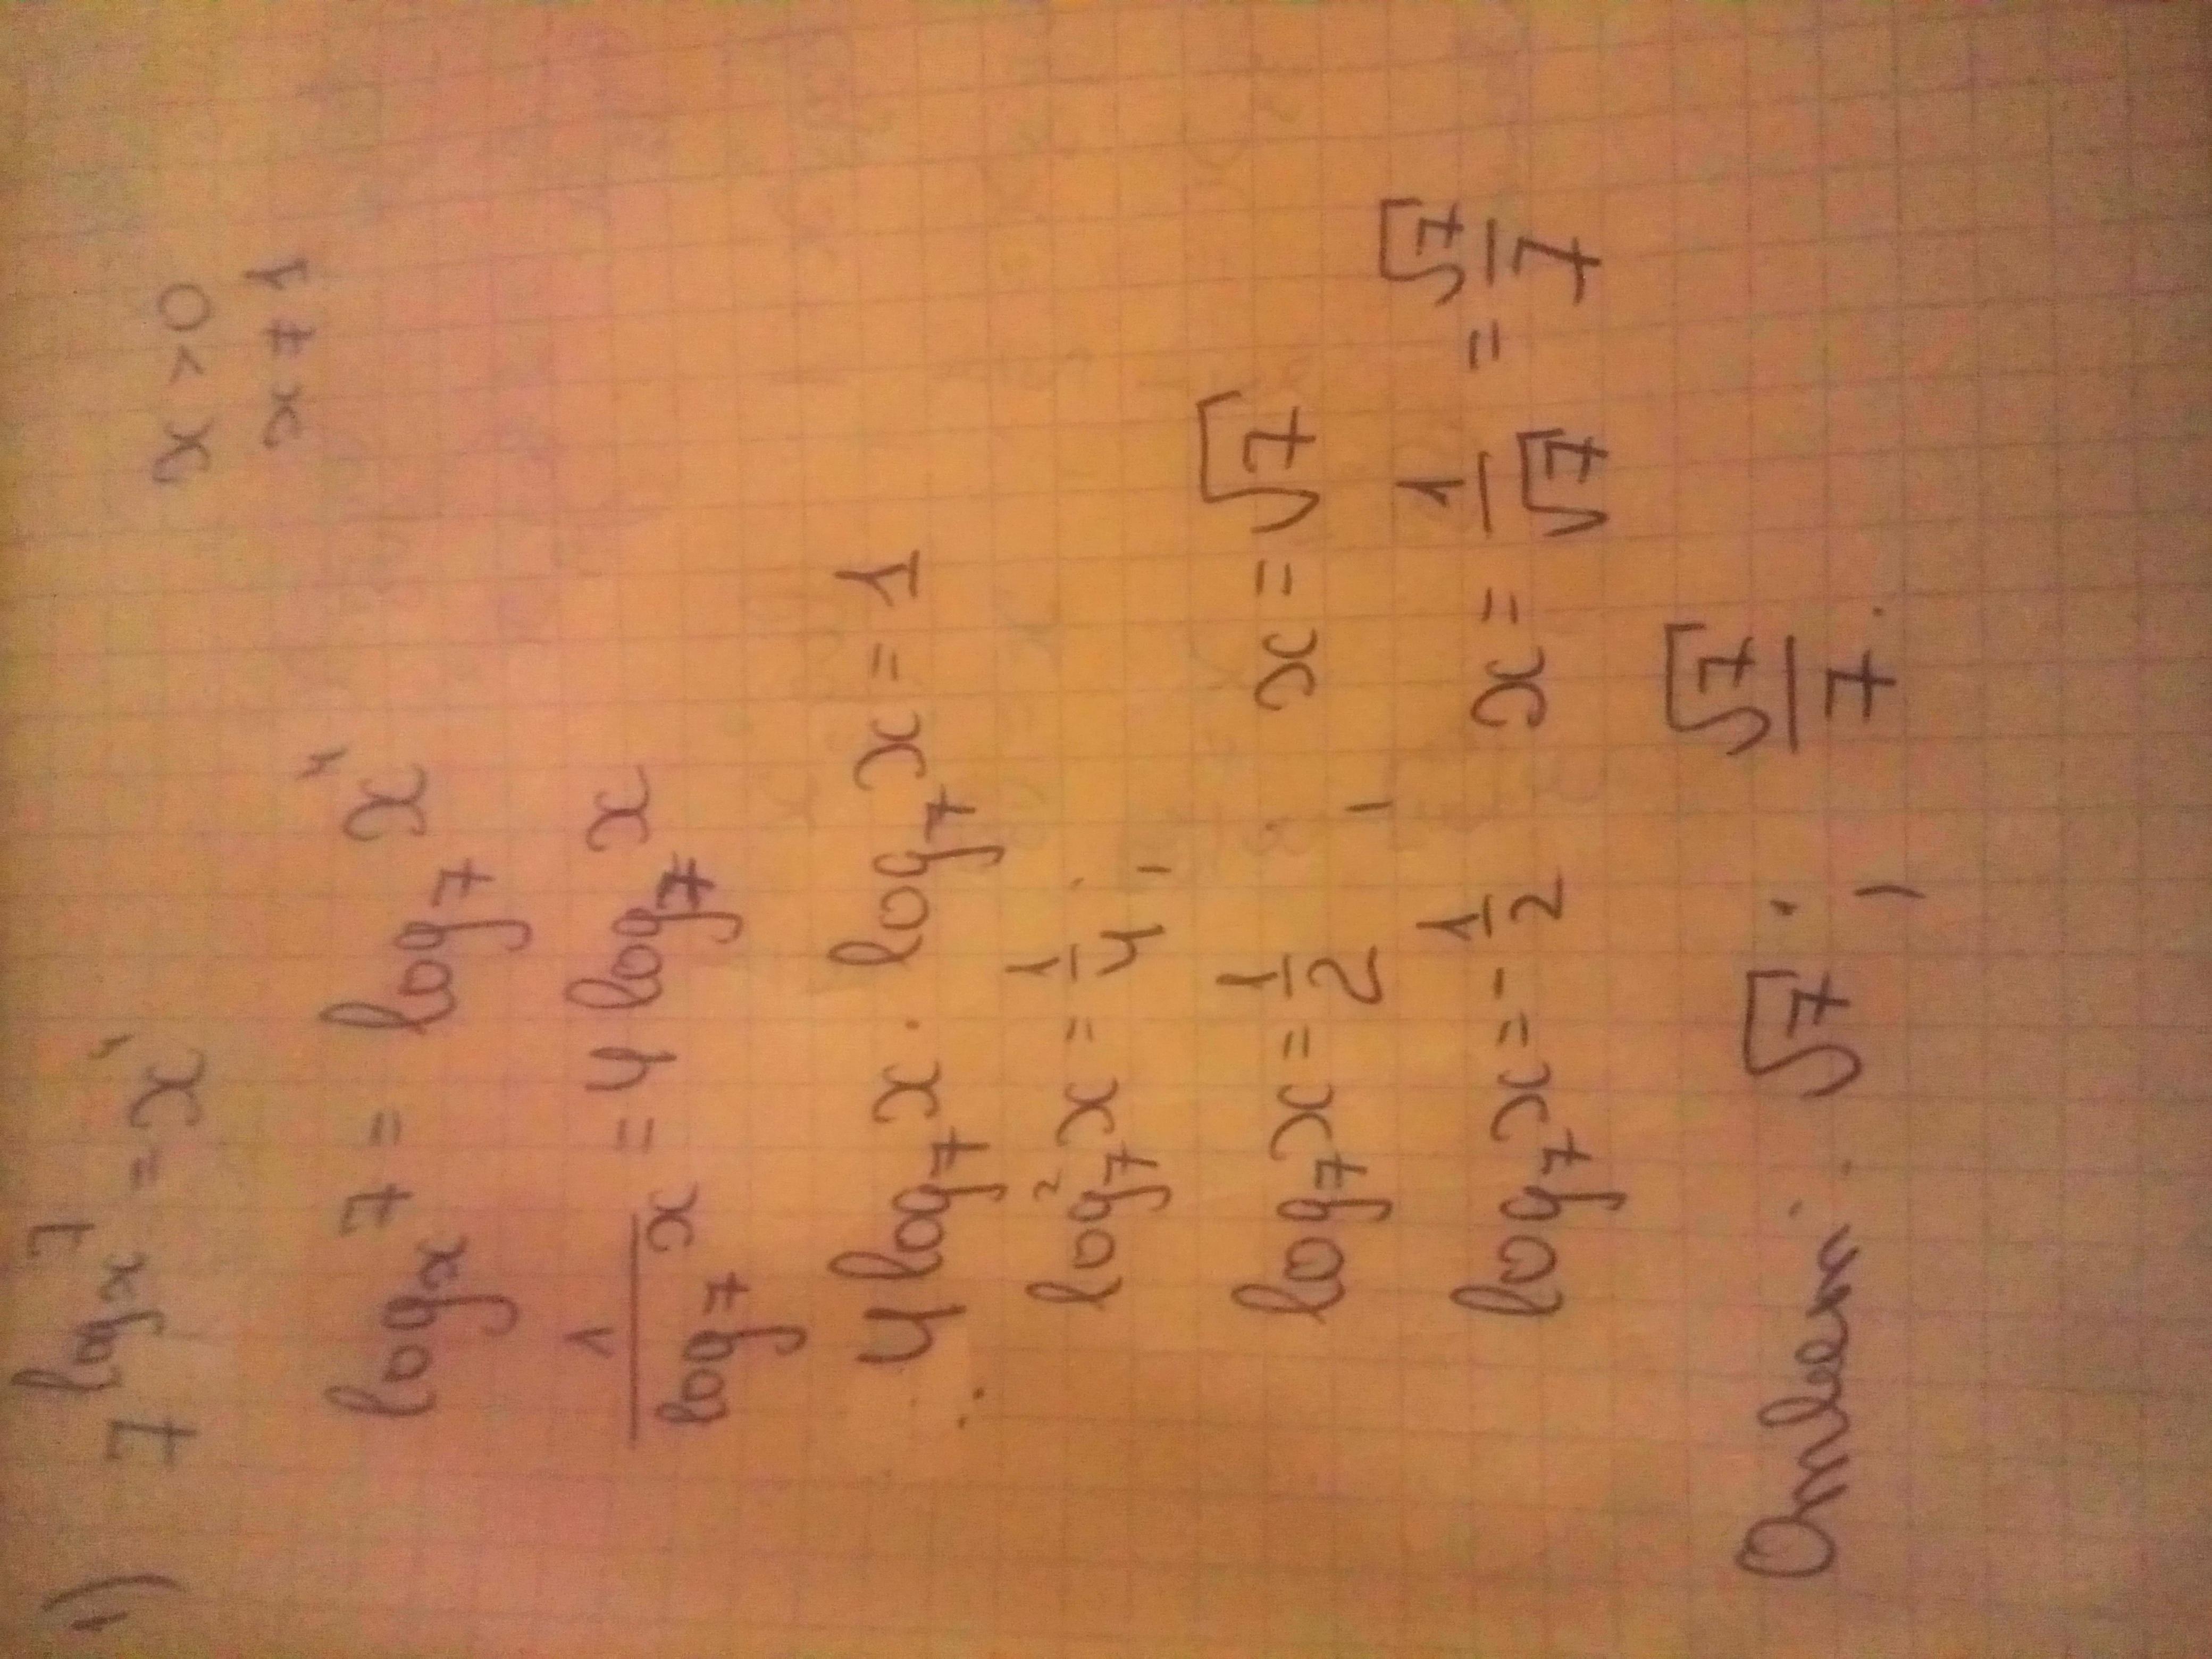 1) 7^{log_x 7} = x^4   x > 0
x ≠ 1
log_x 7 = log_7 x^4
\frac{1}{log_7 x} = 4 log_7 x
4 log_7 x · log_7 x = 1
log_7^2 x = \frac{1}{4};
log_7 x = \frac{1}{2};   x = √7
log_7 x = -\frac{1}{2}   x = \frac{1}{√7} = \frac{√7}{7}
Ответ: √7; \frac{√7}{7}.